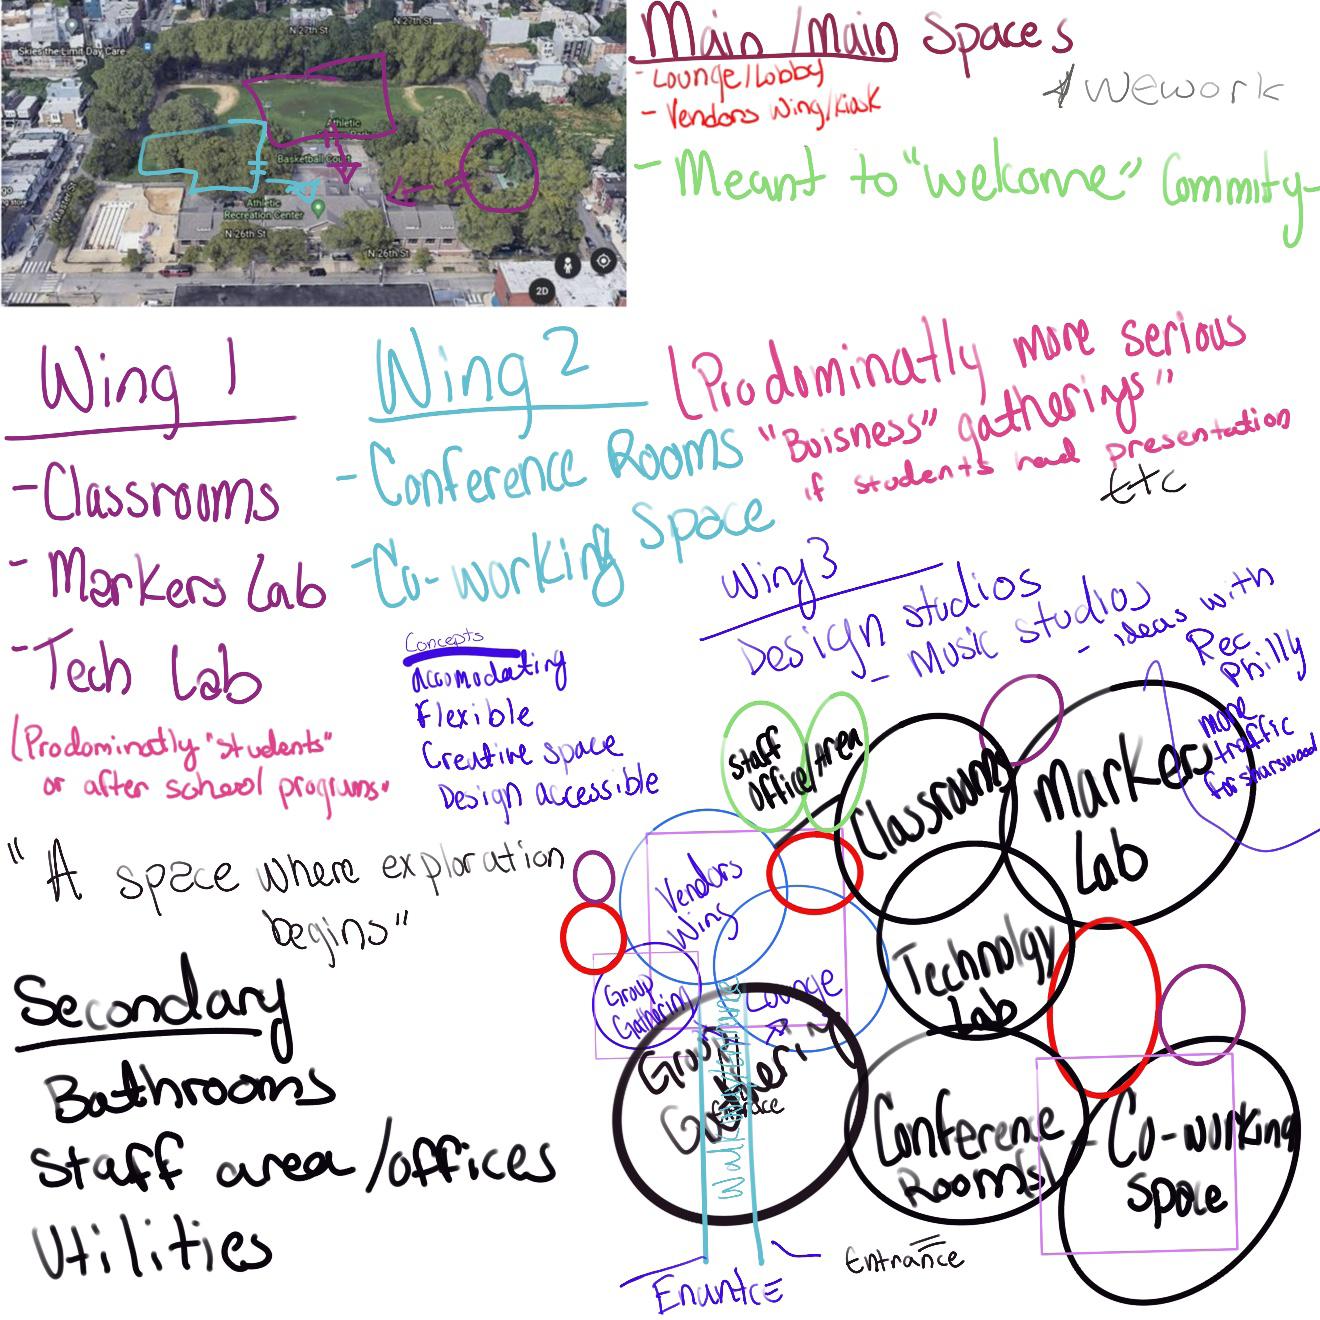 Skies the Limit Day Care
N 27th St
N 27th St
Athletic
Basketball Court
Athletic
Recreation Center
Master St
N 26th St
N 26th St
2D
Main /Main Spaces
- Lounge/Lobby
- Vendors Wing/Kiosk
Wework
- Meant to "welcome" Commity
Wing 1
- Classrooms
- Markers Lab
- Tech Lab
(Prodominatly "students"
or after school programs"
Wing 2
- Conference Rooms
- Co-working Space
(Prodominatly more serious
"Buisness" gatherings"
if students had presentation
Etc
Wing 3
Design studios
- Music studios
- ideas with
Rec
Philly
more
traffic
for sharswood
Concepts
Accomodating
Flexible
Creative space
Design accessible
"A space where exploration
begins"
Secondary
Bathrooms
Staff area/offices
Utilities
Staff
Office/Area
Classrooms
Markers
Lab
Vendors
Wing
Technolgy
Lab
Group
Gathering
Lounge
Group
Gathering
Conference
Room(s)
Co-working
Space
Entrance
Enantce